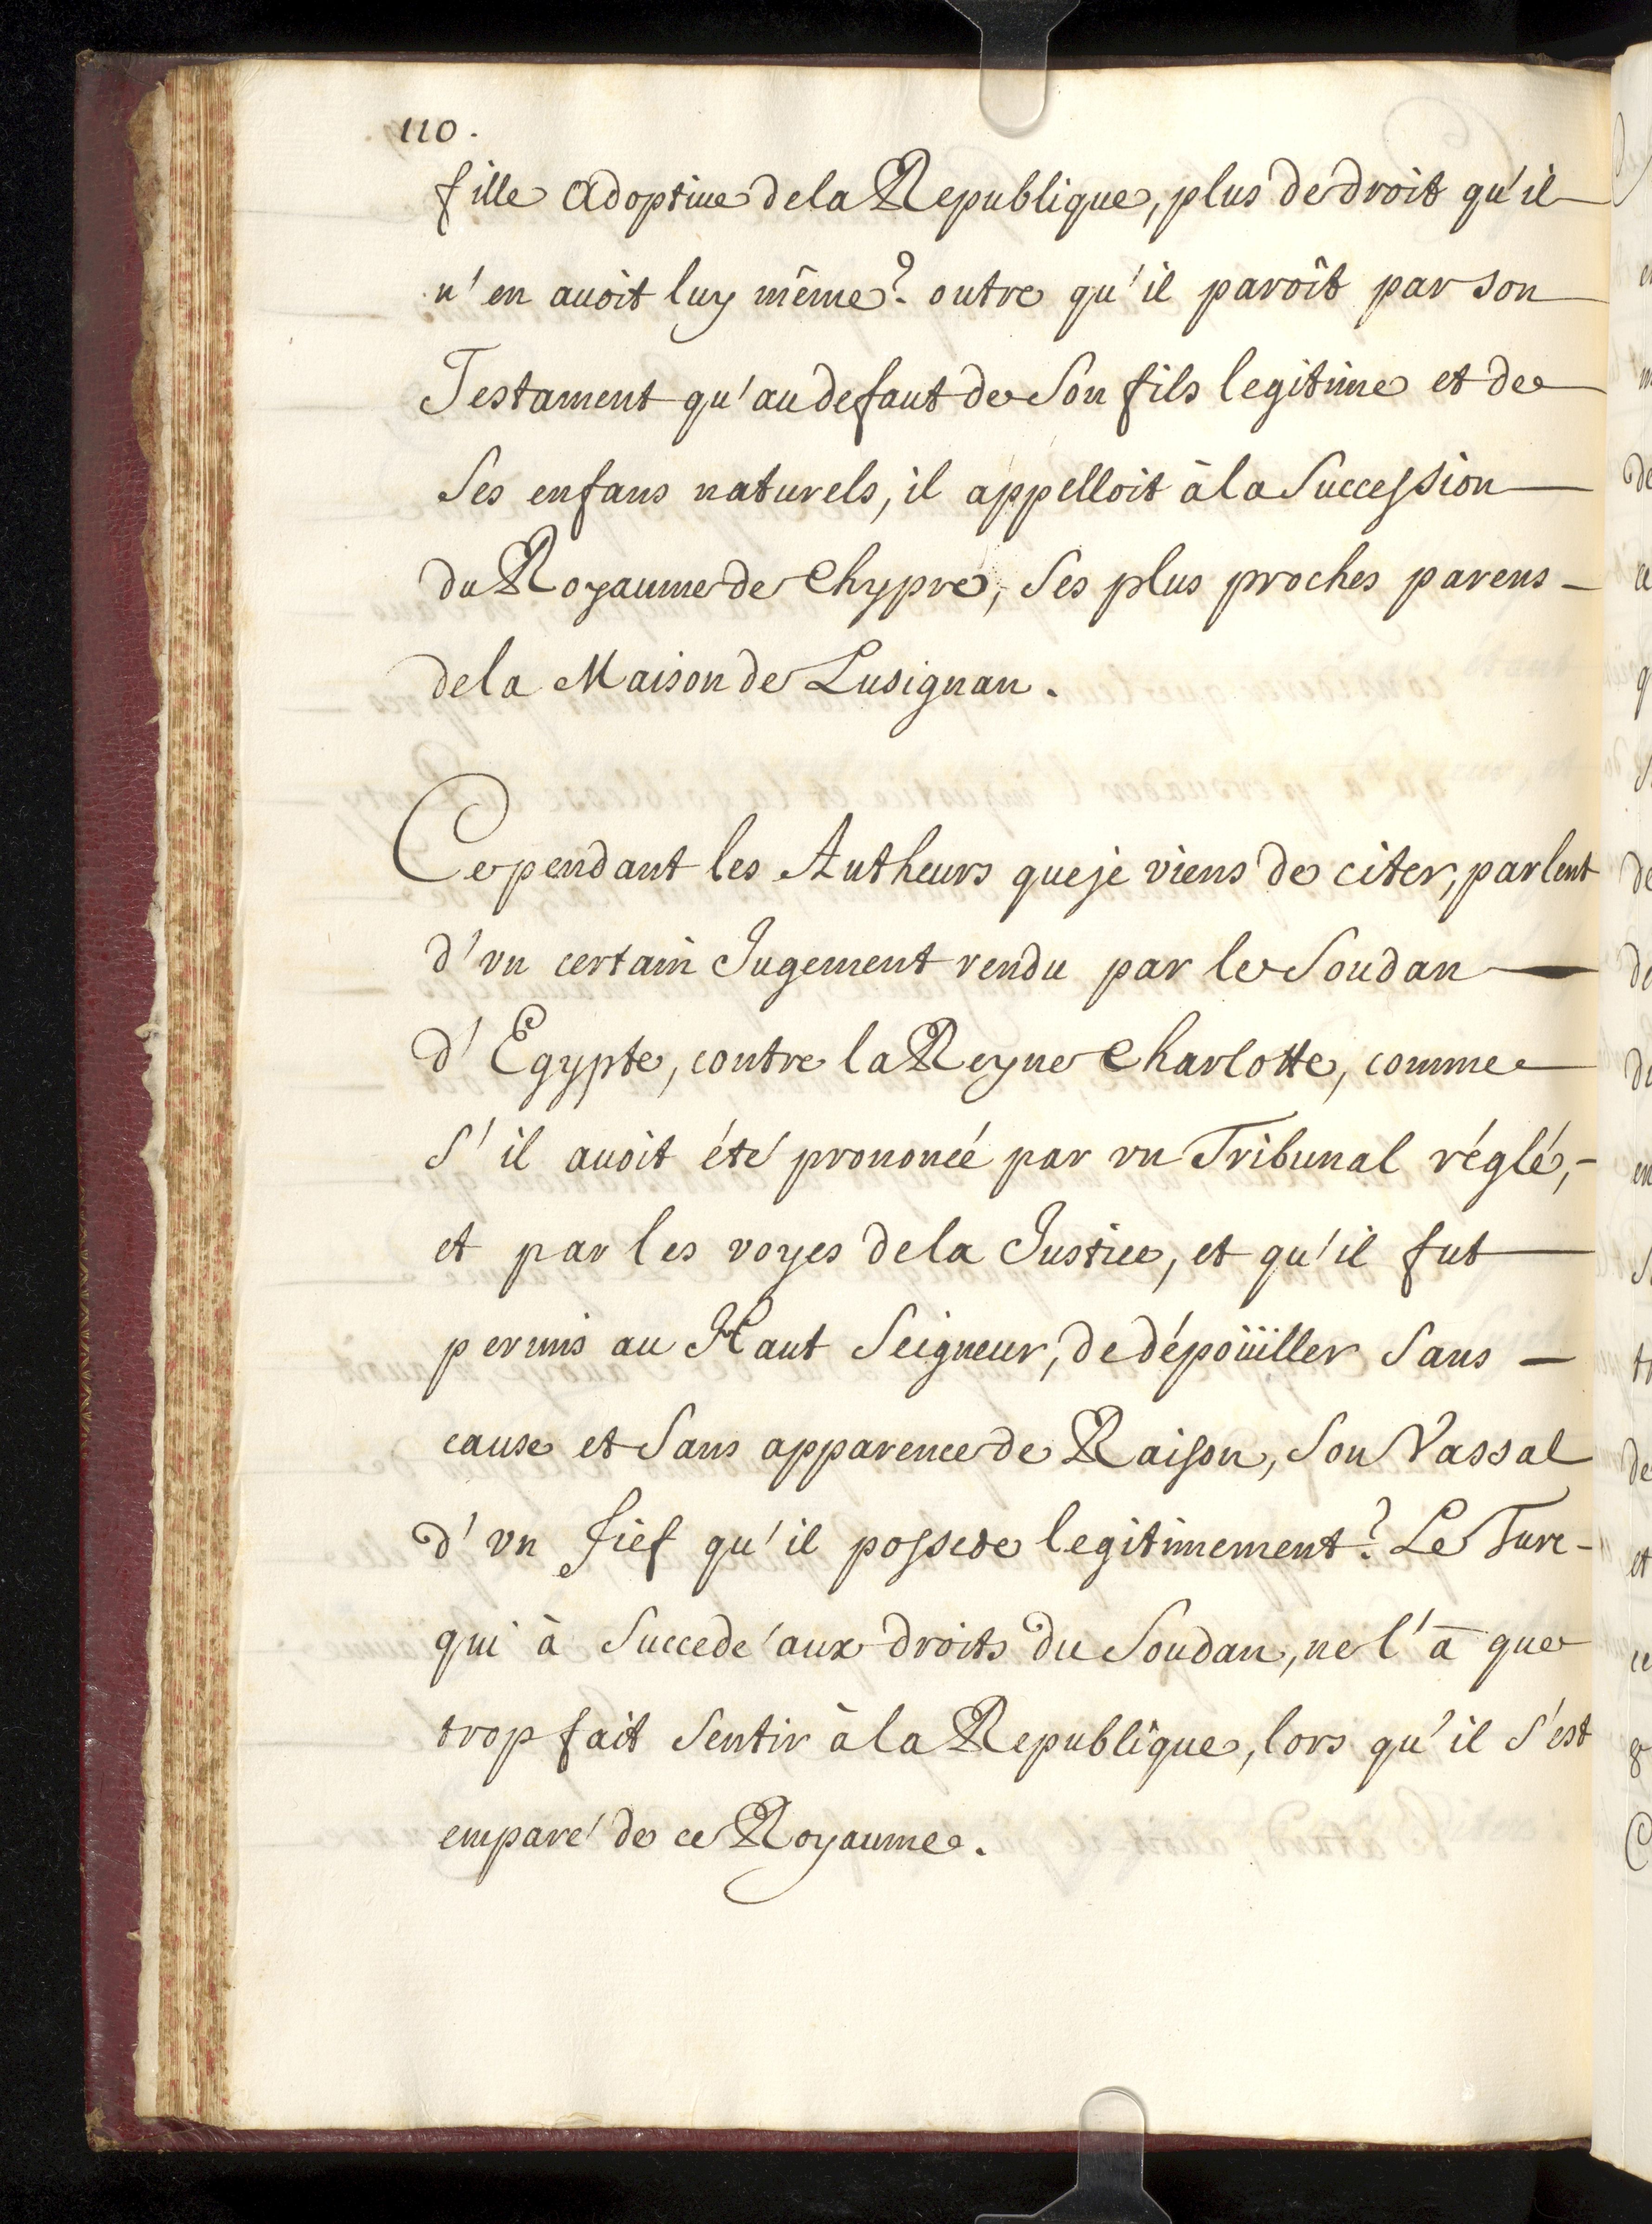 110.
fille adoptiue de la Republique, plus de droit qu'il
n'en auoit luy même? outre qu'il paroît par son
Testament qu'au defaut de Son fils legitime et de
Ses enfans naturels, il appelloit à la Succession
du Royaume de Chypre, Ses plus proches parens
de la Maison de Lusignan.
Cependant les Autheurs que je viens de citer, parlent
d'vn certain Jugement rendu par le Soudan
d'Egypte, contre la Reyne Charlotte, comme
S'il auoit été prononcé par vn Tribunal réglé,
et par les voyes de la Justice, et qu'il fut
permis au Haut Seigneur, de dépoüiller Sans
cause et Sans apparence de Raison, Son Vassal
d'vn fief qu'il possede legitimement? Le Turc
qui à Succede' aux droits du Soudan, ne l'a que
trop fait Sentir à la Republique, lors qu'il s'est
emparé de ce Royaume.